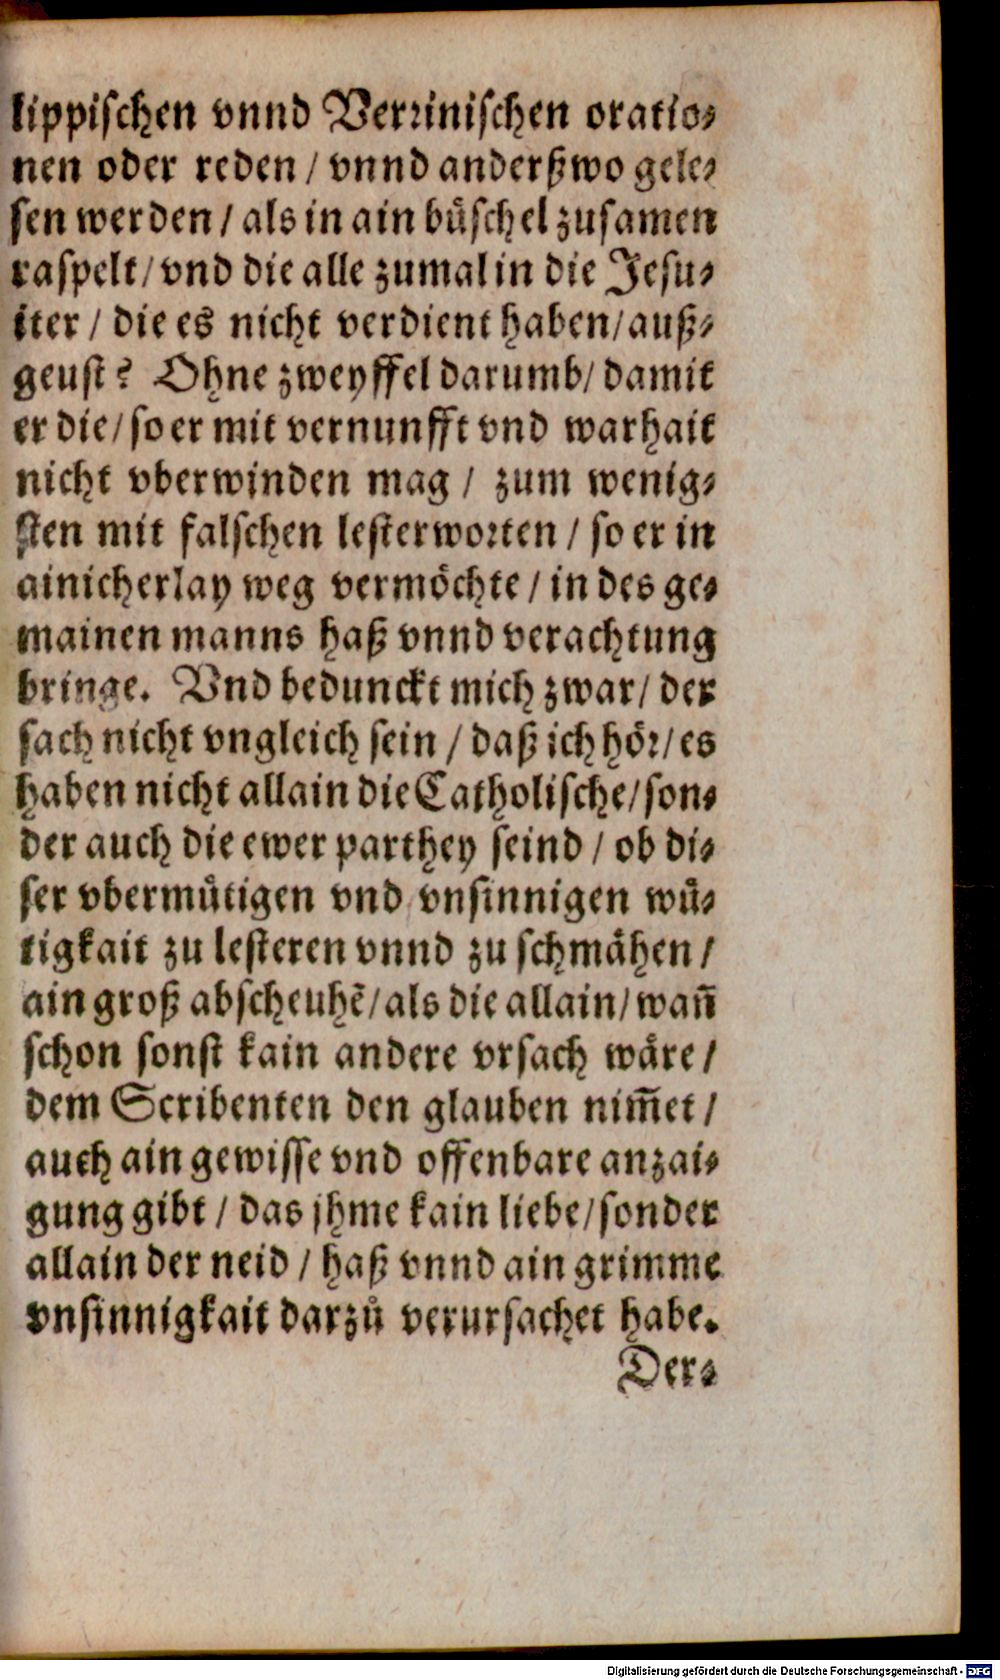 lippischen vnnd Verrinischen oratio⸗
nen oder reden / vnnd anderßwo gele⸗
sen werden / als in ain büschel zusamen
raspelt / vnd die alle zumal in die Jesu⸗
iter / die es nicht verdient haben / auß⸗
geust? Ohne zweyffel darumb / damit
er die / so er mit vernunfft vnd warhait
nicht vberwinden mag / zum wenig⸗
sten mit falschen lesterworten / so er in
ainicherlay weg vermöchte / in des ge⸗
mainen manns haß vnnd verachtung
bringe. Vnd bedunckt mich zwar / der
sach nicht vngleich sein / daß ich hör / es
haben nicht allain die Catholische / son⸗
der auch die ewer parthey seind / ob di⸗
ser vbermütigen vnd vnsinnigen wü⸗
tigkait zu lesteren vnnd zu schmähen /
ain groß abscheuhẽ / als die allain / wañ
schon sonst kain andere vrsach wäre /
dem Scribenten den glauben nim̃et /
auch ain gewisse vnd offenbare anzai⸗
gung gibt / das jhme kain liebe / sonder
allain der neid / haß vnnd ain grimme
vnsinnigkait darzů verursachet habe.
Der⸗
Digitalisierung gefördert durch die Deutsche Forschungsgemeinschaft - DFG